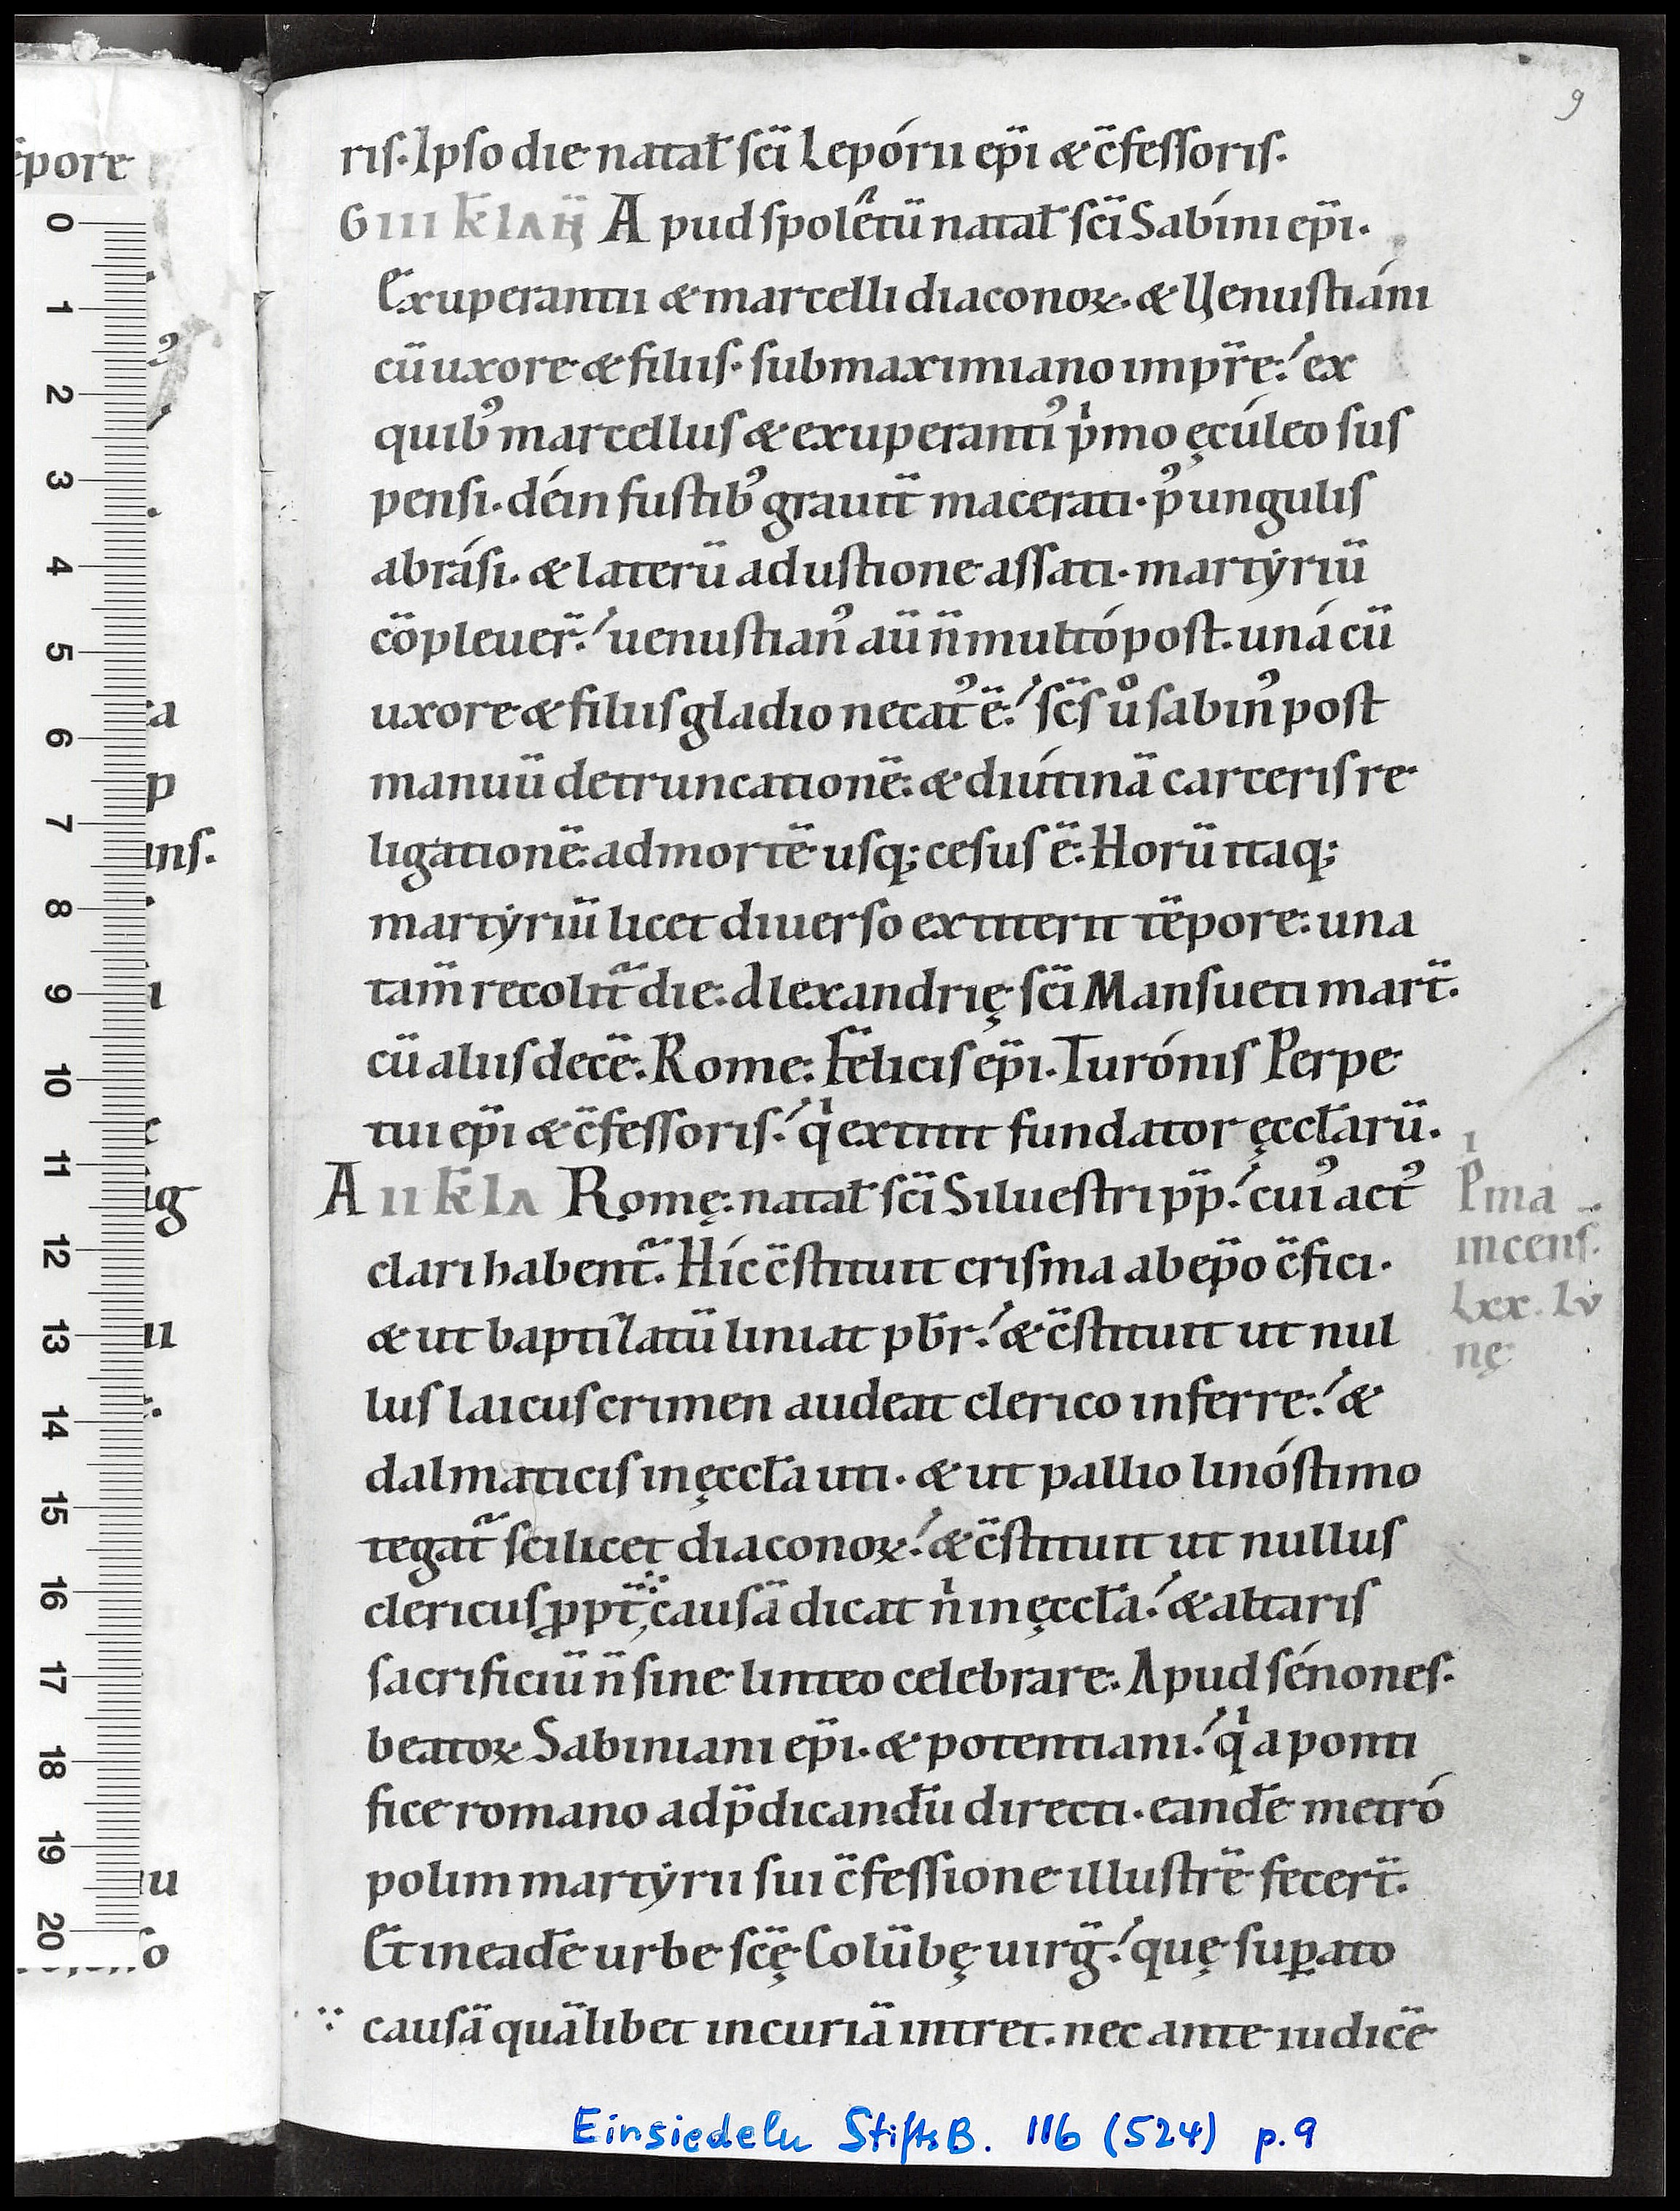 9
ris. Ipso die natał sc̄i Lepórii ep̄i & c̄fessoris.
G III k̄l ıāɴ̄ Apud spolêtū natał sc̄i Sabíni ep̄i.
Exuperantii & marcelli diaconoꝝ. & Venustiáni
cū uxore & filiis. sub maximiano impr̄e. ex
quibꝰ marcellus & exuperantiꝰ pͥmo ęcúleo sus
pensi. déin fustibꝰ grauit̄ macerati. pꝰ ungulis
abrási. & laterū adustione assati. martẏriū
cōpleuer̄. uenustianꝰ aū n̄ multó post. uná cū
uxore & filiis gladio necatꝰ ē. sc̄s uͦ sabinꝰ post
manuū detruncationē: & diútinā carceris re
ligationē: ad mortē usq; cesus ē: Horū itaq;
martẏriū licet diuerso extiterit tēpore: una
tam̄ recolit᷒ die: Alexandrię sc̄i Mansueti mart̄.
cū aliis decē: Rome: Felicis ep̄i. Turónis Perpe
tui ep̄i & c̄fessoris. qͥ extitit fundator ęccl̄arū.
A II k̄l ıᴀ Romę: natał sc̄i Siluestri pp̄. cuiꝰ actꝰ
clari habent᷒. Híc c̄stituit crisma ab ep̄o c̄fici.
& ut baptizatū liniat pb̄r. & c̄stituit ut nul
lus laicus crimen audeat clerico inferre. &
dalmaticis in ęccl̄a uti. & ut pallio linóstimo
tegat᷒ scilicet diaconoꝝ. & c̄stituit ut nullus
clericus ꝓpt̄ causā dicat nͥ in ęccl̄a. & altaris
sacrificiū n̄ sine linteo celebrare: Apud sénones.
beatoꝝ Sabiniani ep̄i. & potentiani. qͥ a ponti
fice romano ad p̄dicandū directi. eandē metró
polim martẏrii sui c̄fessione illustrē fecert̄.
Et in eadē urbe sc̄ę Colūbę uirḡ. quę suꝑato
∵ causā quālibet in curiā intret. nec ante iudicē
Pͥma
incens̄.
Lxx. Lv
nę
ēpore
ins.
Einsiedeln StiftsB. 116 (524) p. 9
0
1
2
3
4
5
6
7
8
9
10
11
12
13
14
15
16
17
18
19
20